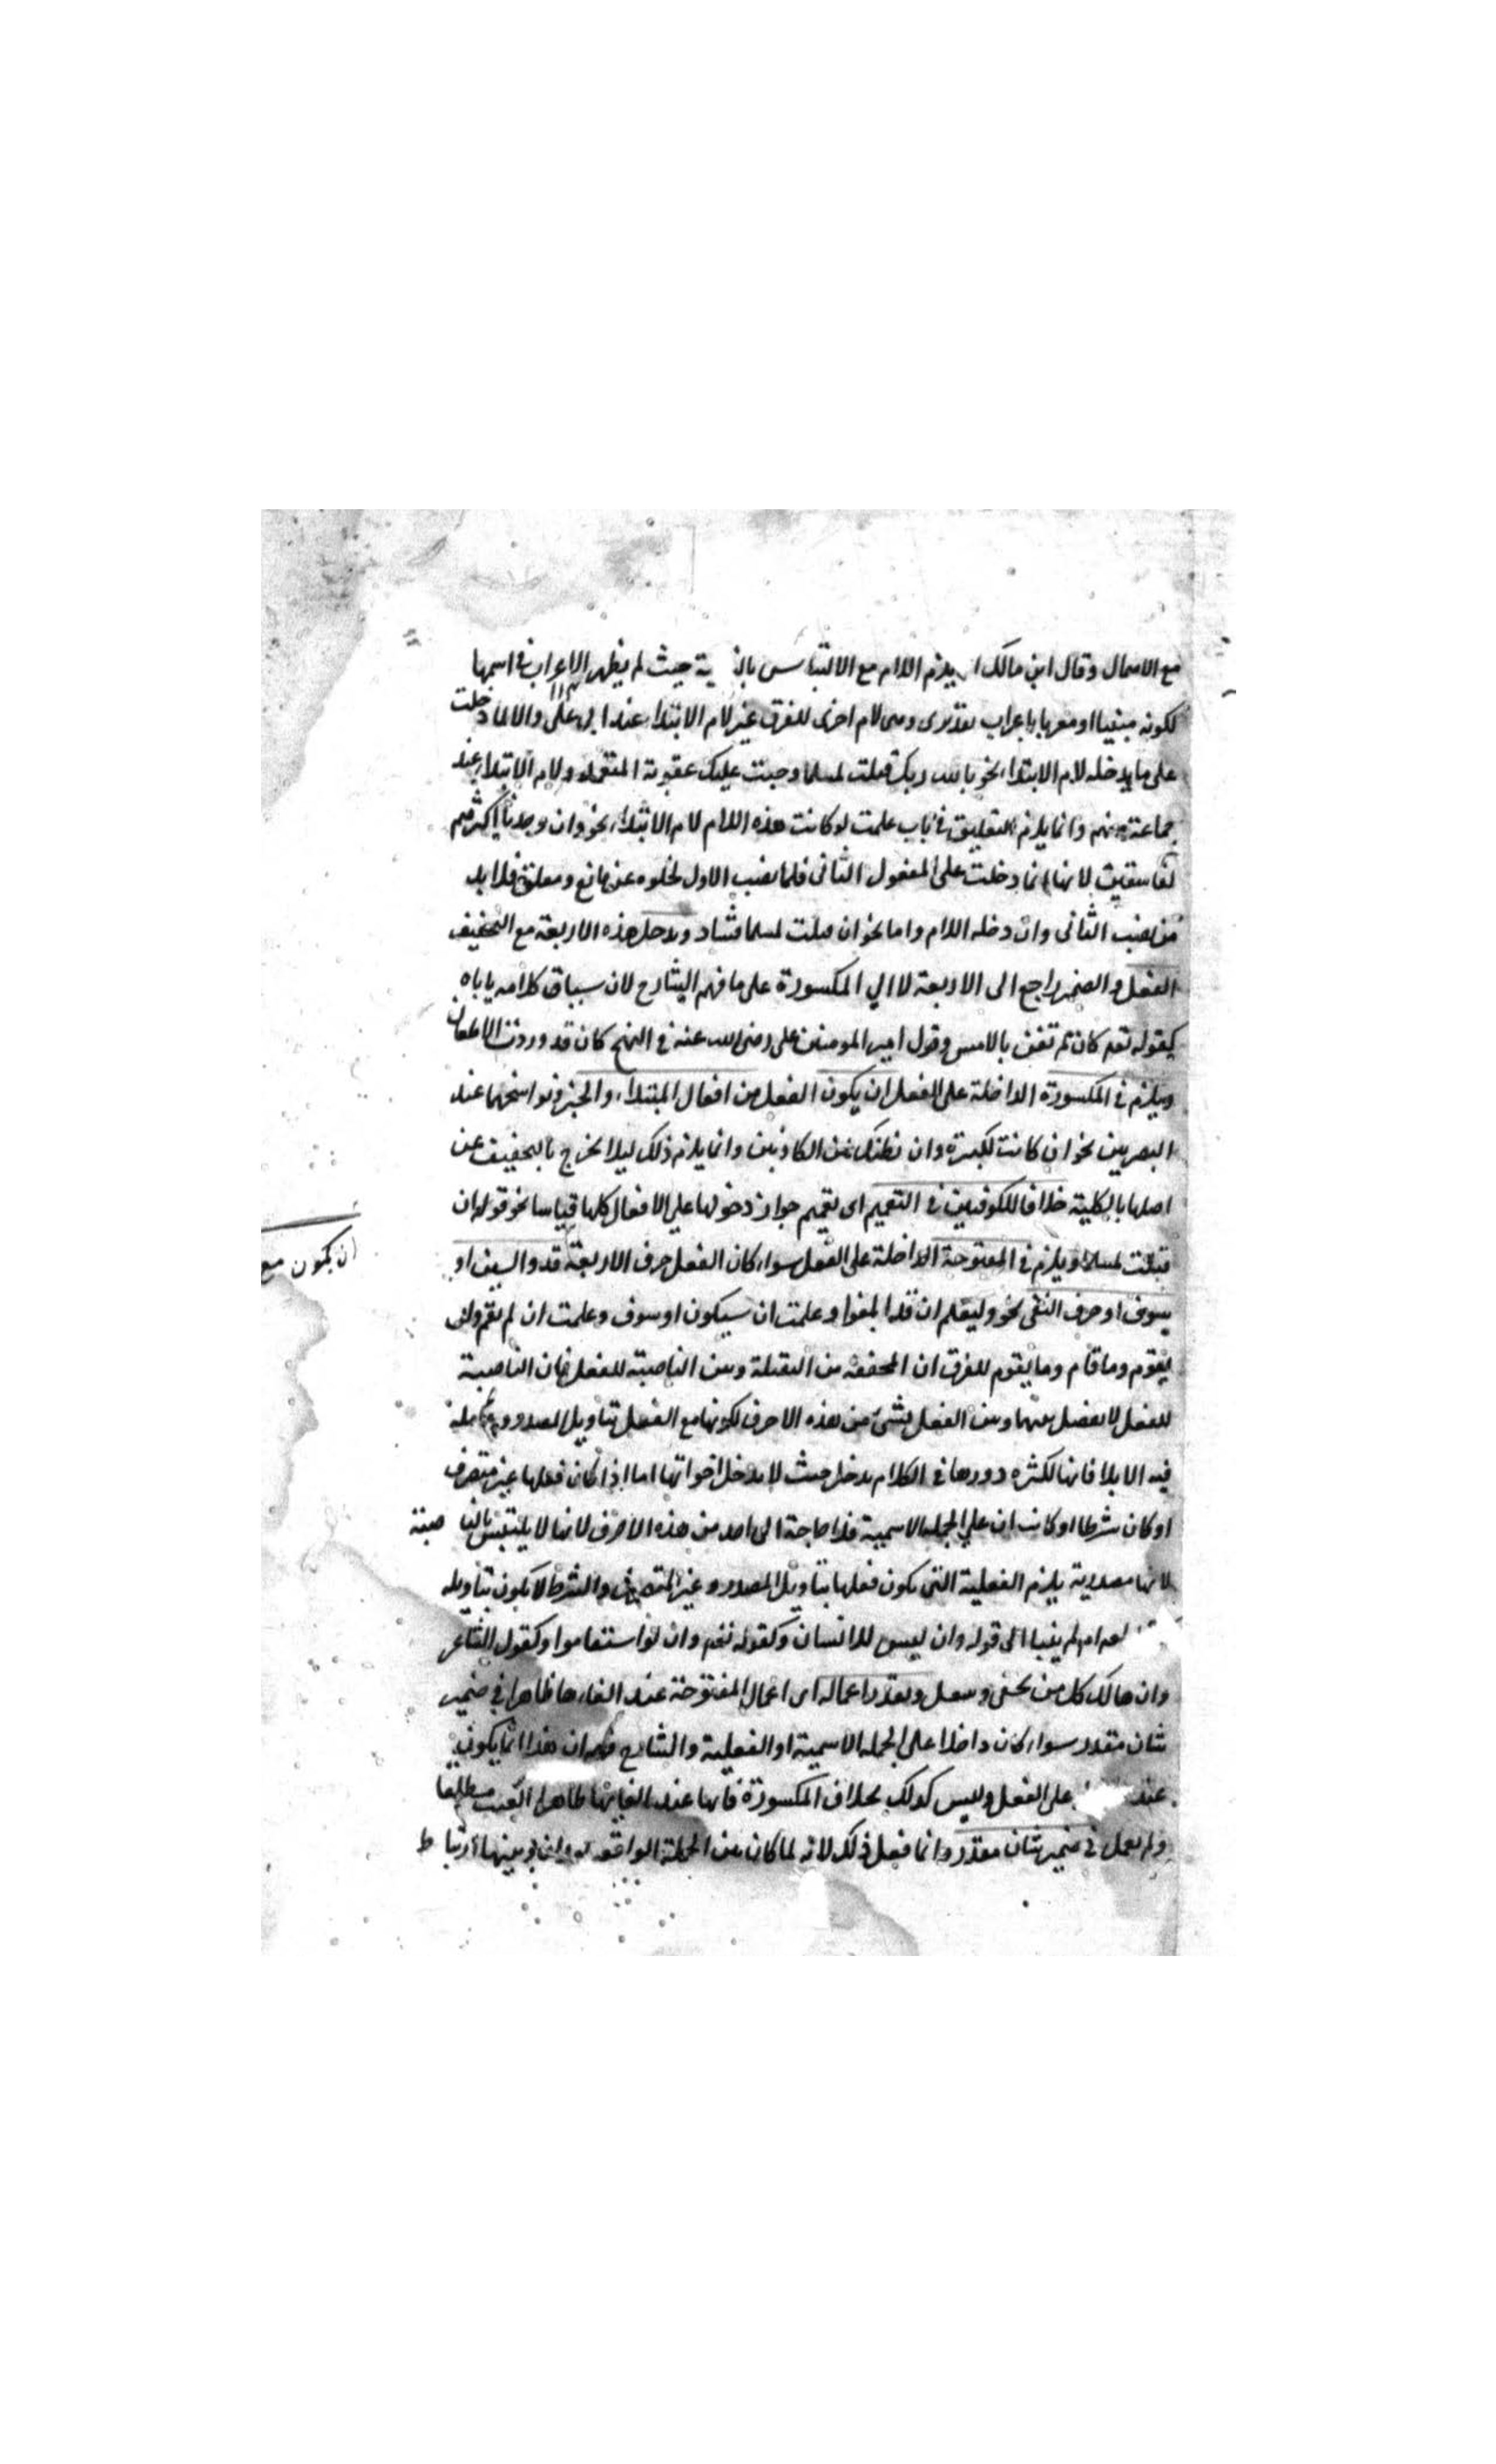 مع الاعمال وقال ابن مالك يلزم اللام مع الالتباس حيث لم يظهر الاعراب في اسمها
لكونه مبنيا او معربا باعراب تقديرى وهى لام اخرى للفرق غير لام الابتداء عند ابى على والا لما دخلت
على ما يدخله لام الابتداء نحو بالله ربك قتلت لمسلما وجبت عليك عقوبة المتعمد ولام الابتداء عند
جماعة منهم وانما يلزم التعليق في باب علمت لو كانت هذه اللام لام الابتداء نحو وان وجدنا اكثرهم
لفاسقين لانها انما دخلت على المفعول الثانى فلما نصب الاول لخلوه عن مانع ومعلق فلا بد
من نصب الثانى وان دخله اللام واما نحو ان قتلت لمسلما فشاذ ويدخل هذه الاربعة مع التخفيف
الفعل والضمير راجع الى الاربعة لا الى المكسورة على ما فهم الشارح لان سياق كلامه ياباه
كقوله تعم كان لم تغن بالامس وقول امير المومنين على رضى الله عنه في النهج كان قد وردت الاظعان
ويلزم في المكسورة الداخلة على الفعل ان يكون الفعل من افعال المبتداء والخبر في نواسخهما عند
البصريين نحو ان كانت لكبيرة وان نظنك لمن الكاذبين وانما يلزم ذلك ليلا يخرج بالتخفيف عن
اصلها بالكلية خلافا للكوفيين في التعميم اى تعميم جواز دخولها على الافعال كلها قياسا نحو قوله ان
قتلت لمسلما ويلزم في المفتوحة الداخلة على الفعل سواء كان الفعل حرف الاربعة قد والسين او
سوف او حرف النفى نحو وليعلم ان قد ابلغوا وعلمت ان سيكون او سوف وعلمت ان لم يقم ولن
يقوم وما قام وما يقوم للفرق ان المخففة من الثقيلة وبين الناصبة للفعل فان الناصبة
للفعل لا يفصل بينها وبين الفعل بشىء من هذه الاحرف لكونها مع الفعل بتاويل المصدر
فيه الا بلا فانها لكثرة دورها في الكلام يدخل حيث لا يدخل اخواتها اما اذا كان فعلها غير متصرف
او كان شرطا او كانت ان على الجملة الاسمية فلا حاجة الى احد من هذه الاحرف لانها لا يلتبس بالناصبة
لانها مصدرية يلزم الفعلية التى يكون فعلها بتاويل المصدر وغير المتصرف والشرط لا يكون بتاويله
ام لم ينبا الى قوله وان ليس للانسان وكقوله تعم وان لو استقاموا وكقول الشاعر
وان هالك كل من يحفى وينعل ويقدر اعماله اى اعمال المفتوحة عند الغاءها ظاهرا في ضمير
شان مقدر سواء كان داخلا على الجملة الاسمية او الفعلية والشارح فهم ان هذا انما يكون
عند على الفعل وليس كذلك بخلاف المكسورة فانها عند الغائها ظاهرا الغيت مطلقا
ولم يعمل في ضمير شان مقدر وانما فعل ذلك لانه لما كان بين الجملة الواقعة بعد ان وبينها ارتباط
ان يكون مع